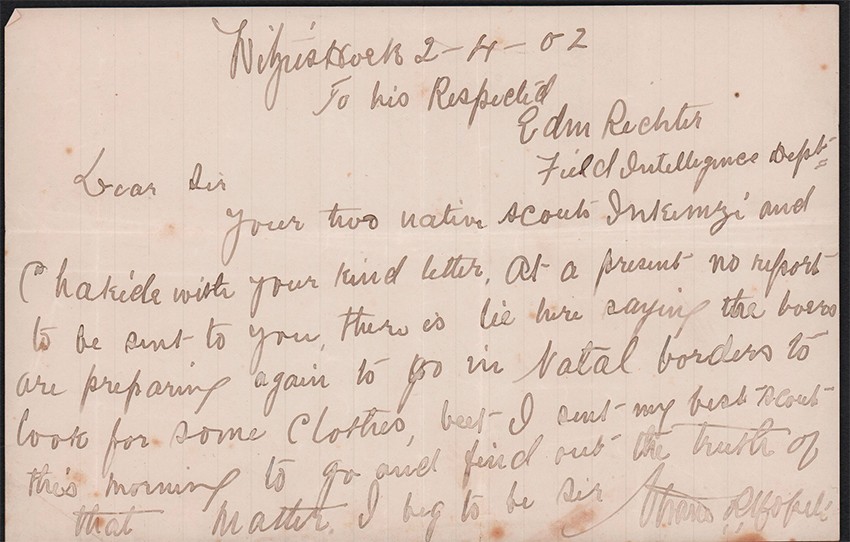 Witzieshoek 2-4-02
To his Respectéd
Edm Rechter
Field Intelligence Dept
Dear Sir
Your two native scouts Inkimzi and
Chakide with your kind letter, At a present no report
to be sent to you, there is lie here saying the boers
are preparing again to go in Natal borders to
look for some clothes, but I sent my best scout
this morning to go and find out the truth of
that Matter. I beg to be Sir